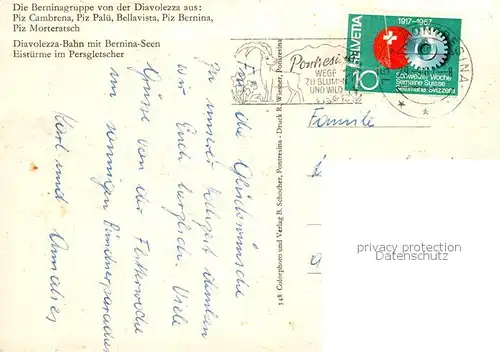 Die Berninagruppe von der Diavolezza aus:
Piz Cambrena, Piz Palü, Bellavista, Piz Bernina,
Piz Morteratsch
Diavolezza-Bahn mit Bernina-Seen
Eistürme im Persgletscher
Für die Glückwünsche
zu unserer Hochzeit danken
wir Euch herzlich. Viele
Grüsse von der Flitterwoche
im sonnigen Bündnerparadies
Karl und Annalies
548 Colorphoto und Verlag B. Schocher, Pontresina - Druck R. Wiesner, Pontresina
Pontresina
WEGE
ZU BLUMEN
UND WILD
HELVETIA
1917-1967
10
Schweizer Woche
Semaine Suisse
Familie
privacy protection
watermark